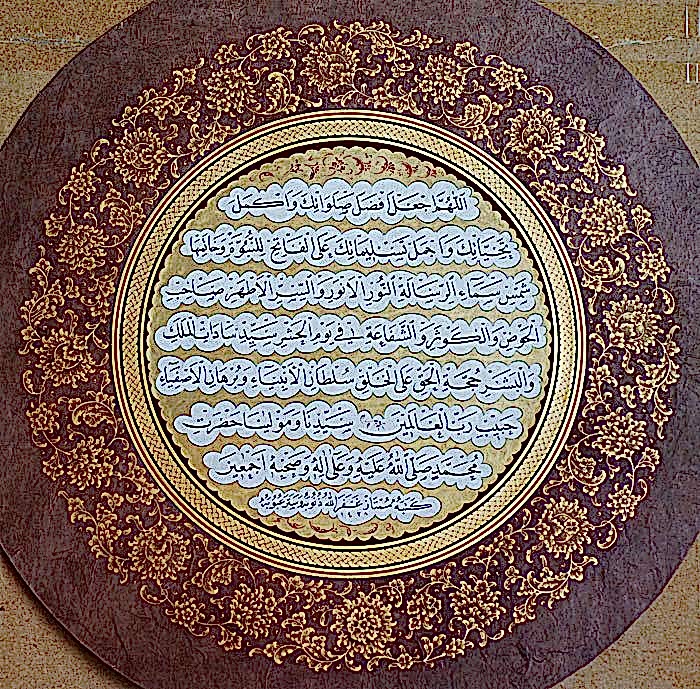 اللهم اجعل افضل صلواتك واكمل
تحياتك واجمل تسليماتك على الفاتح للنبوة وخاتمها
شمس سماء الرسالة النور الانور والسر الاطهر صاحب
الحوض والكوثر والشفاعة في يوم الحشر سيد سادات الملك
والبشر حجة الحق على الخلق سلطان الأنبياء وبرهان الأصفياء
حبيب رب العالمين سيدنا ومولينا حضرت
محمد صلى الله عليه وعلى آله وصحبه اجمعين
كتبه ممتاز غفر الله ذنوبه وستر عيوبه